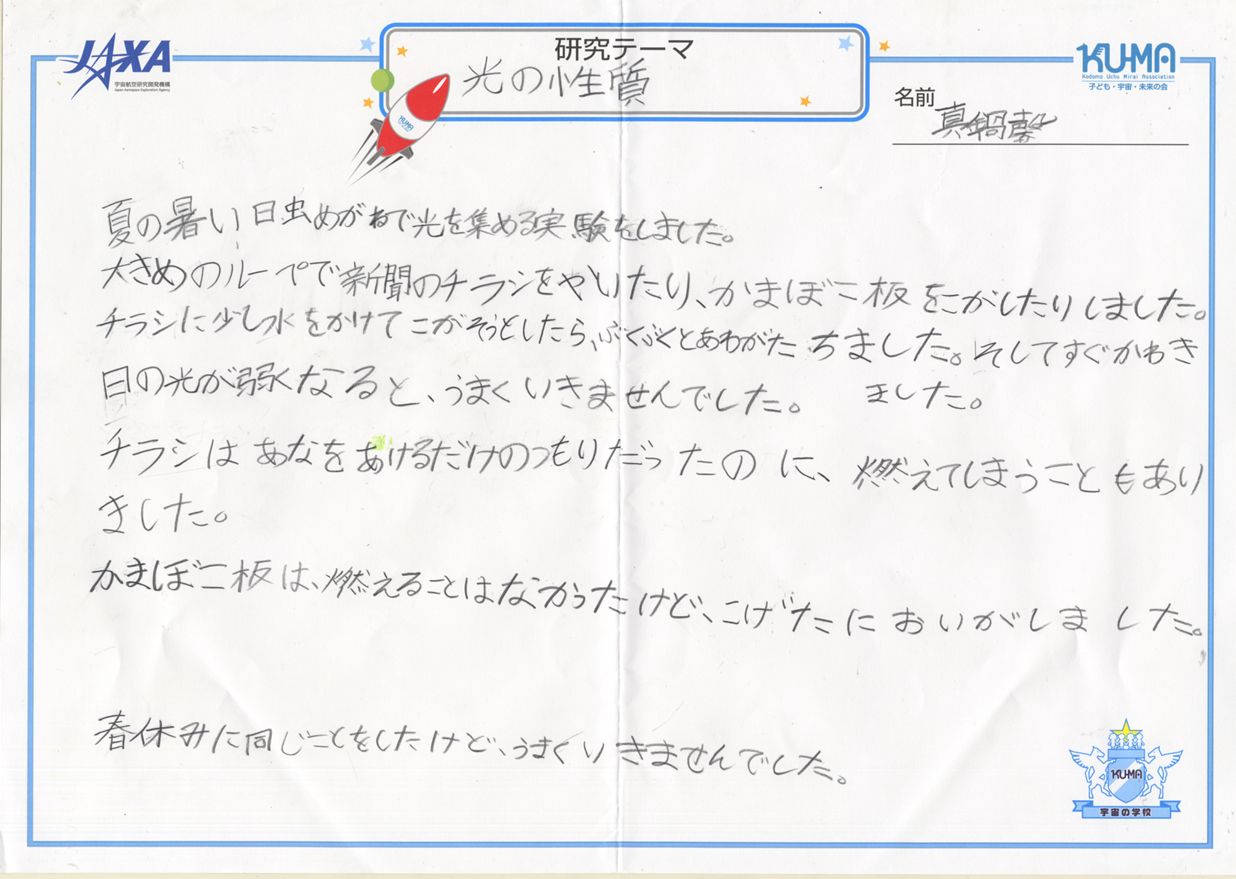 JAXA
宇宙航空研究開発機構
Japan Aerospace Exploration Agency
研究テーマ
光の性質
KUMA
Kodomo Uchu Mirai Association
子ども・宇宙・未来の会
名前
真鍋馨
KUMA
夏の暑い日虫めがねで光を集める実験をしました。
大きめのルーペで新聞のチラシをやいたり、かまぼこ板をこがしたりしました。
チラシに少し水をかけてこがそうとしたら、ぶくぶくとあわがたちました。そしてすぐかわき
ました。
日の光が弱くなると、うまくいきませんでした。
チラシはあなをあけるだけのつもりだったのに、燃えてしまうこともあり
ました。
かまぼこ板は、燃えることはなかったけど、こげたにおいがしました。
春休みに同じことをしたけど、うまくいきませんでした。
KUMA
宇宙の学校